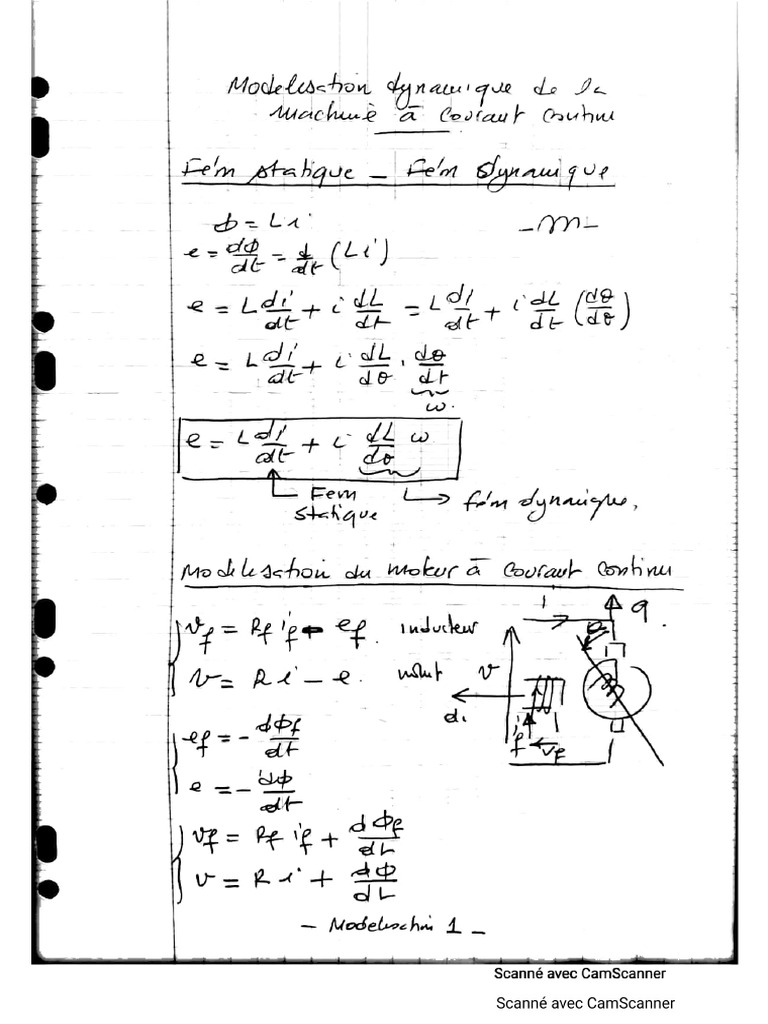 Modelisation dynamique de la
machine à courant continu
Fém statique _ Fém dynamique
ϕ = L i
e = dϕ/dt = d/dt (L i)
e = L di/dt + i dL/dt = L di/dt + i dL/dt (dθ/dθ)
e = L di/dt + i dL/dθ . dθ/dt
ω.
e = L di/dt + i dL/dθ ω
Fem
statique
fém dynamique,
Modelisation du moteur à courant continu
v_f = R_f i_f - e_f . inducteur
v = R i - e . induit
e_f = - dϕ_f/dt
e = - dϕ/dt
v_f = R_f i_f + dϕ_f/dt
v = R i + dϕ/dt
i
q.
θ
v
d.
i_f
v_f
- Modelisation 1 -
Scanné avec CamScanner
Scanné avec CamScanner